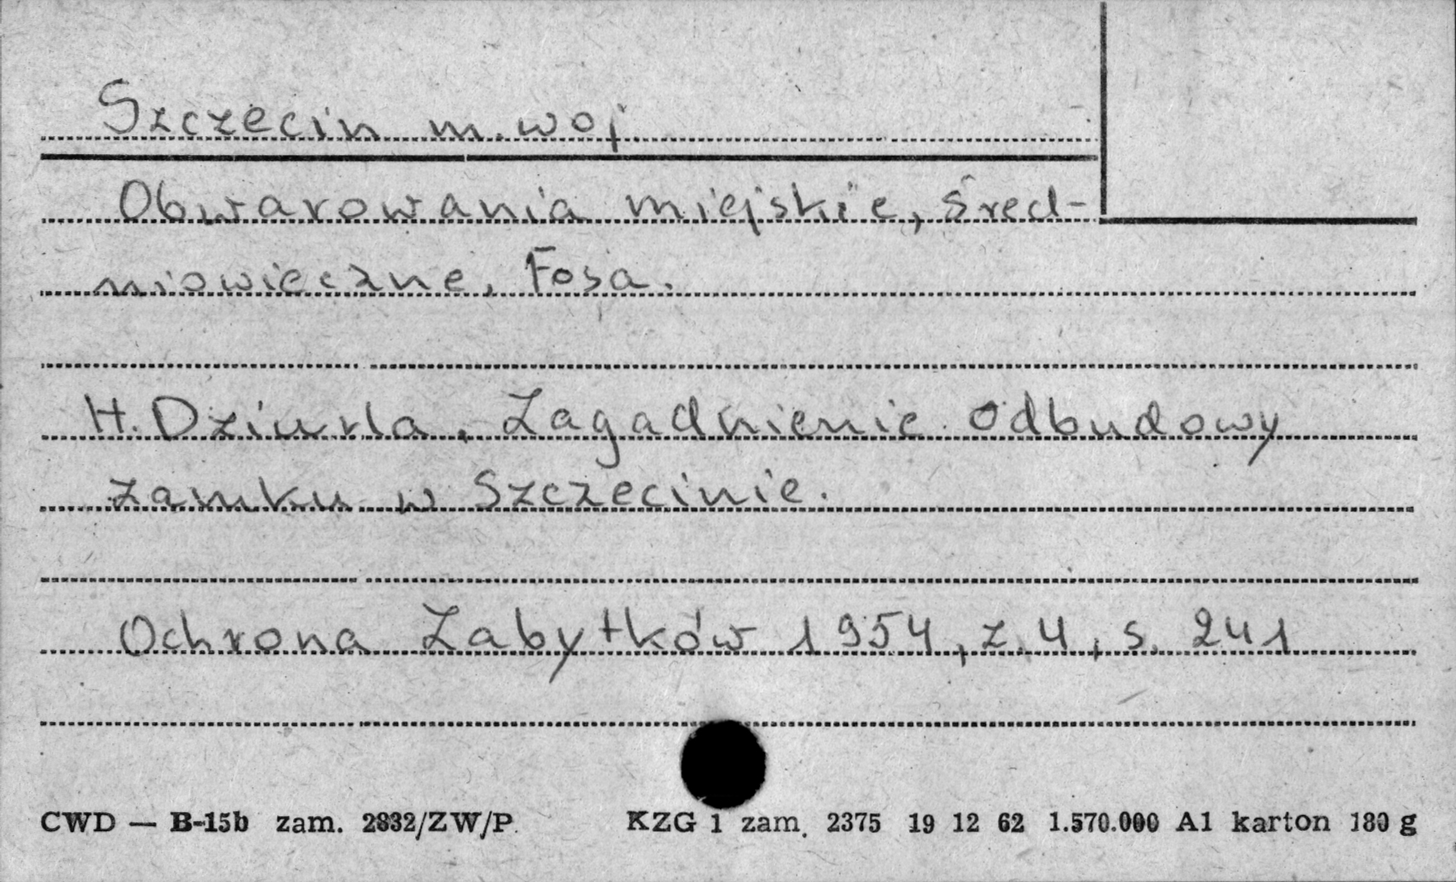 Szczecin m. woj.
Obwarowania miejskie, śred-
niowieczne, Fosa.
H. Dziurla, Zagadnienie odbudowy
zamku w Szczecinie.
Ochrona Zabytków 1954, z. 4, s. 241
CWD — B-15b zam. 2832/ZW/P. KZG 1 zam. 2375 19 12 62 1.570.000 A1 karton 180 g